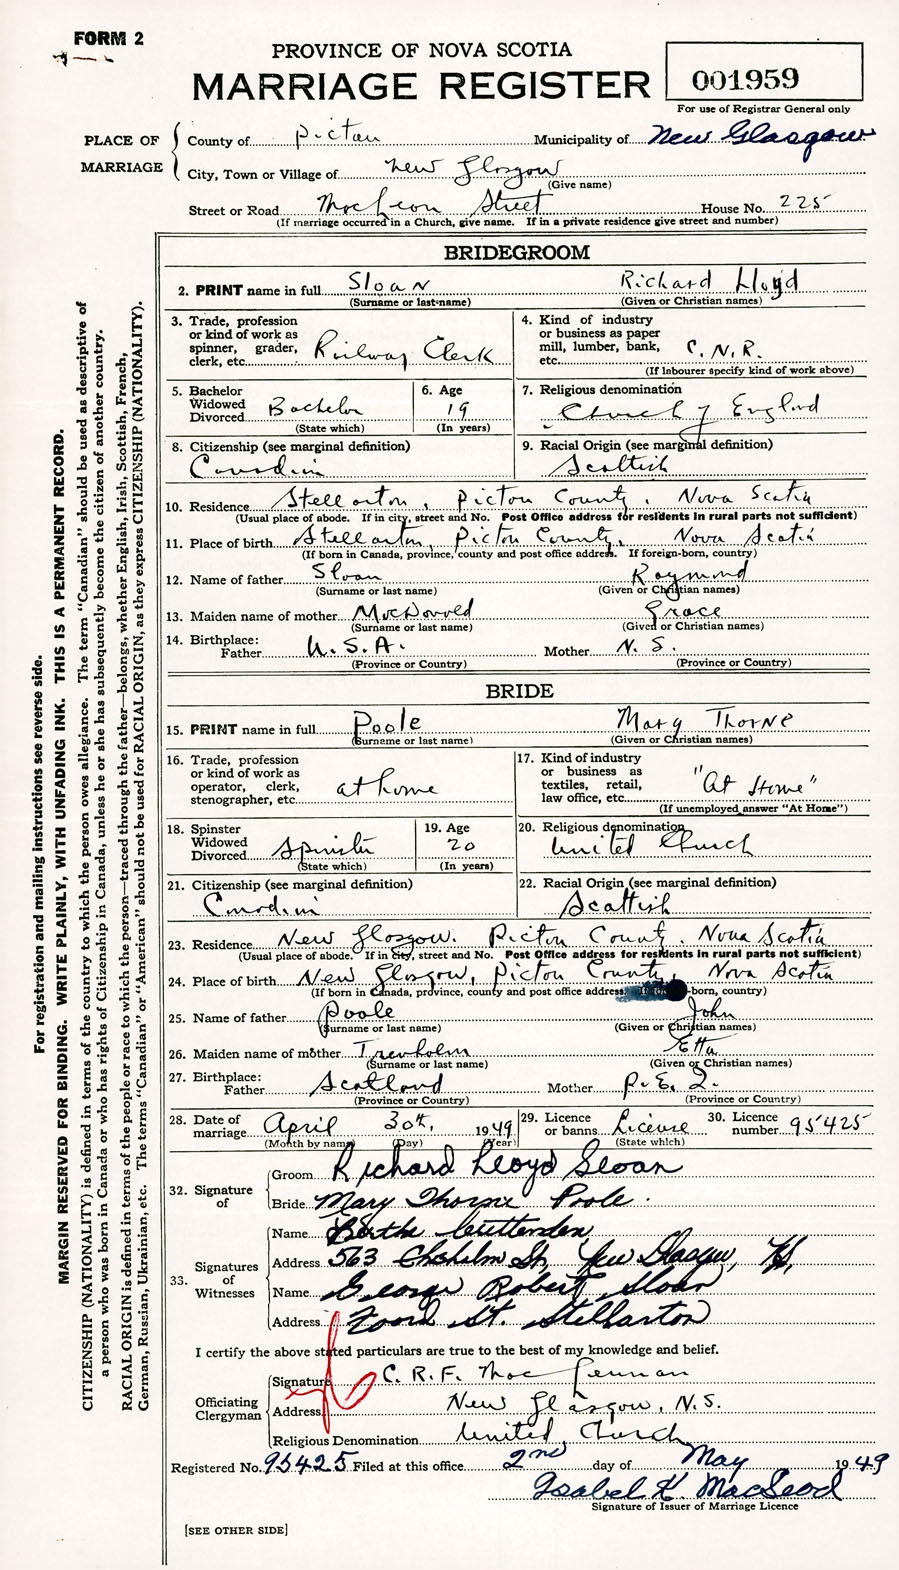 FORM 2
PROVINCE OF NOVA SCOTIA
MARRIAGE REGISTER
001959
For use of Registrar General only
PLACE OF MARRIAGE
County of Pictou Municipality of New Glasgow
City, Town or Village of New Glasgow
(Give name)
Street or Road Street House No. 225
(If marriage occurred in a Church, give name. If in a private residence give street and number)
BRIDEGROOM
2. PRINT name in full Sloan Richard Lloyd
(Surname or last name) (Given or Christian names)
3. Trade, profession or kind of work as spinner, grader, clerk, etc. Railway Clerk
4. Kind of industry or business as paper mill, lumber, bank, etc. C.N.R.
(If labourer specify kind of work above)
5. Bachelor Widowed Divorced Bachelor
(State which)
6. Age 19
(In years)
7. Religious denomination Church of England
8. Citizenship (see marginal definition) Canadian
9. Racial Origin (see marginal definition) Scottish
10. Residence Stellarton, Pictou County, Nova Scotia
(Usual place of abode. If in city, street and No. Post Office address for residents in rural parts not sufficient)
11. Place of birth Stellarton, Pictou County, Nova Scotia
(If born in Canada, province, county and post office address. If foreign-born, country)
12. Name of father Sloan Raymond
(Surname or last name) (Given or Christian names)
13. Maiden name of mother MacDonald Grace
(Surname or last name) (Given or Christian names)
14. Birthplace: Father U.S.A. Mother N.S.
(Province or Country) (Province or Country)
BRIDE
15. PRINT name in full Poole Mary Thorne
(Surname or last name) (Given or Christian names)
16. Trade, profession or kind of work as operator, clerk, stenographer, etc. at home
17. Kind of industry or business as textiles, retail, law office, etc. "At Home"
(If unemployed answer "At Home")
18. Spinster Widowed Divorced Spinster
(State which)
19. Age 20
(In years)
20. Religious denomination United Church
21. Citizenship (see marginal definition) Canadian
22. Racial Origin (see marginal definition) Scottish
23. Residence New Glasgow. Pictou County, Nova Scotia
(Usual place of abode. If in city, street and No. Post Office address for residents in rural parts not sufficient)
24. Place of birth New Glasgow, Pictou County, Nova Scotia
(If born in Canada, province, county and post office address. If -born, country)
25. Name of father Poole John
(Surname or last name) (Given or Christian names)
26. Maiden name of mother Trenholm Etta
(Surname or last name) (Given or Christian names)
27. Birthplace: Father Scotland Mother P.E.I.
(Province or Country) (Province or Country)
28. Date of marriage April 30th, 1949
(Month by name) (Day) (Year)
29. Licence or banns License
(State which)
30. Licence number 95425
32. Signature of
Groom Richard Lloyd Sloan
Bride Mary Thorne Poole.
33. Signatures of Witnesses
Name Crittenden
Address 563 St, New Glasgow, NS
Name George Robert Sloan
Address Foord St. Stellarton
I certify the above stated particulars are true to the best of my knowledge and belief.
Officiating Clergyman
Signature C. R. F. Mac
Address New Glasgow, N.S.
Religious Denomination United Church
Registered No. 95425 Filed at this office 2nd day of May 1949
Isabel K. MacLeod
Signature of Issuer of Marriage Licence
[SEE OTHER SIDE]
For registration and mailing instructions see reverse side.
MARGIN RESERVED FOR BINDING. WRITE PLAINLY, WITH UNFADING INK. THIS IS A PERMANENT RECORD.
CITIZENSHIP (NATIONALITY) is defined in terms of the country to which the person owes allegiance. The term "Canadian" should be used as descriptive of
a person who was born in Canada or who has rights of Citizenship in Canada, unless he or she has subsequently become the citizen of another country.
RACIAL ORIGIN is defined in terms of the people or race to which the person—traced through the father—belongs, whether English, Irish, Scottish, French,
German, Russian, Ukrainian, etc. The terms "Canadian" or "American" should not be used for RACIAL ORIGIN, as they express CITIZENSHIP (NATIONALITY).